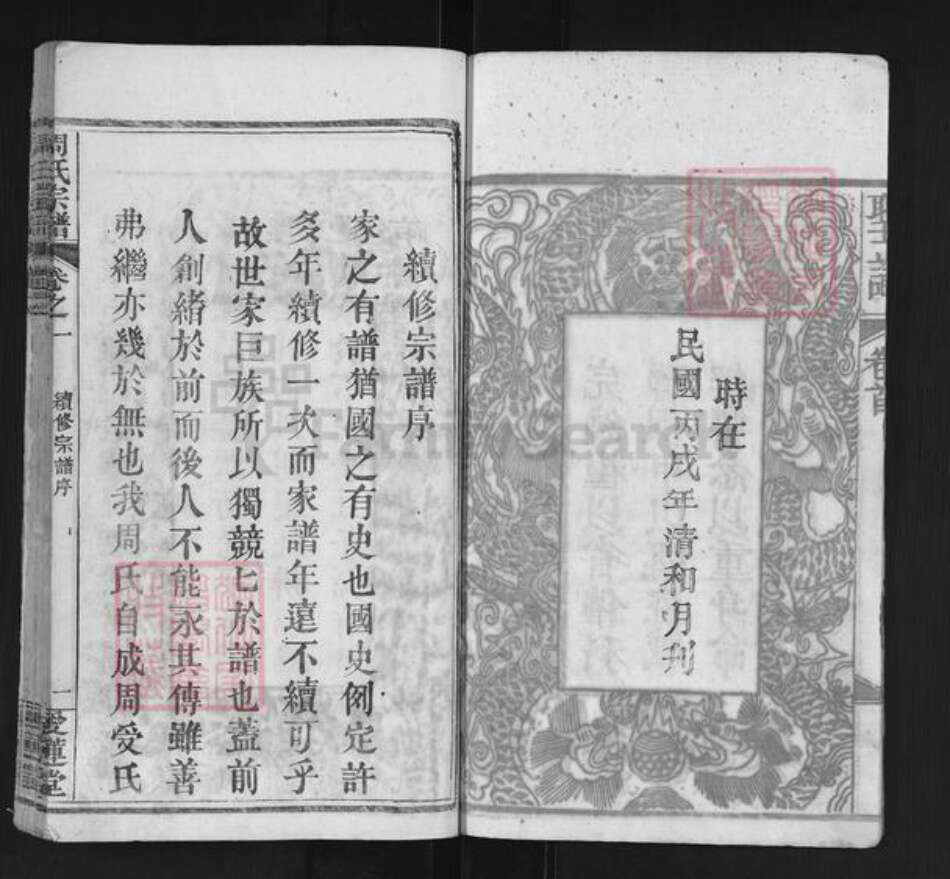 聖諭
卷首
時在
民國丙戌年清和月刋
續修宗譜序
家之有譜猶國之有史也國史例定許
多年續修一次而家譜年遠不續可乎
故世家巨族所以獨競匕於譜也蓋前
人創緒於前而後人不能永其傳雖善
弗繼亦幾於無也我周氏自成周受氏
周氏宗譜
卷之一
續修宗譜序
一
愛蓮堂
FamilySearch